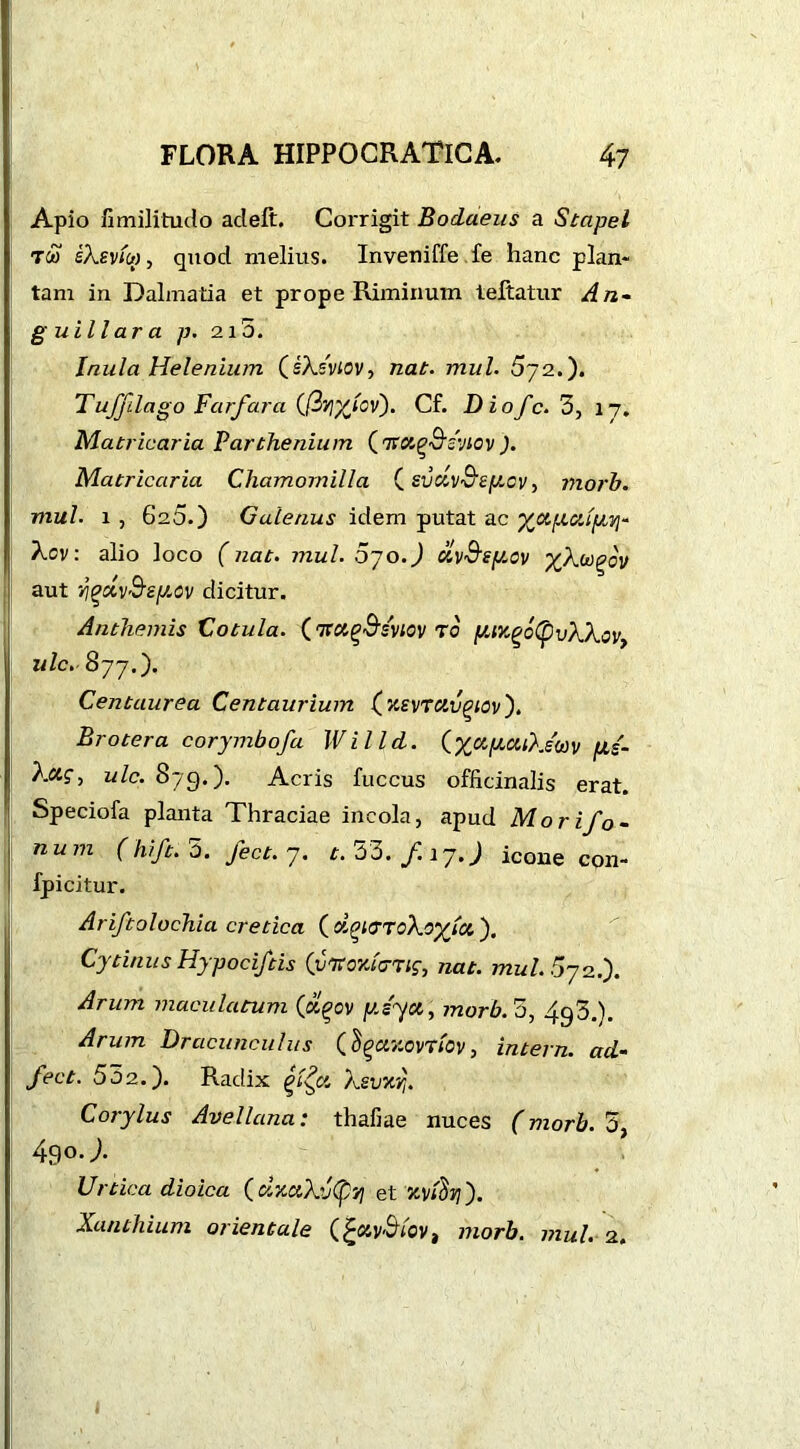 FLORA HIPPOCRATICA. 47
Apio ſimilitudo adeſt. Corrigit Bodaeus a Stapel
τῶ ἑλενίῳ, quod melius. Inveniſſe ſe hanc plan-
tam in Dalmatia et prope Riminum teſtatur An-
guillara p. 215.
Inula Helenium (ἑλένιον, nat. mul. 572.).
Tuſſilago Farfara (βηχίον). Cf. Dioſc. 3, 17.
Matricaria Parthenium (παρθένιον).
Matricaria Chamomilla (εὐάνθεμον, morb.
mul. 1, 625.) Galenus idem putat ac χαμαίμη-
λον: alio loco (nat. mul. 570.) ἄνθεμον χλωρὸν
aut ἠράνθεμον dicitur.
Anthemis Cotula. (παρθένιον τὸ μικρόφυλλον,
ulc. 877.).
Centaurea Centaurium (κενταύριον).
Brotera corymboſa Willd. (χαμαιλέων μέ-
λας, ulc. 879.). Acris ſuccus officinalis erat.
Specioſa planta Thraciae incola, apud Moriſo-
num (hiſt. 3. ſect. 7. t. 33. f. 17.) icone con-
ſpicitur.
Ariſtolochia cretica (ἀριστολοχία).
Cytinus Hypociſtis (ὑποκίστις, nat. mul. 572.).
Arum maculatum (ἄρον μέγα, morb. 3, 493.).
Arum Dracunculus (δρακοντίον, intern. ad-
fect. 532.). Radix ῥίζα λευκή.
Corylus Avellana: thaſiae nuces (morb. 3,
490.).
Urtica dioica (ἀκαλύφη et κνίδη).
Xanthium orientale (ξανθίον, morb. mul. 2.